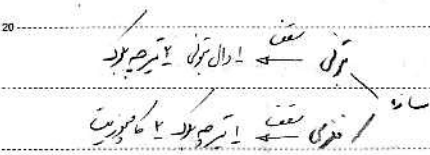 20
سازه
بتنی سقف ← ۱- دال بتنی ۲- تیرچه بلوک
فلزی سقف ← ۱- تیرچه بلوک ۲- کامپوزیت